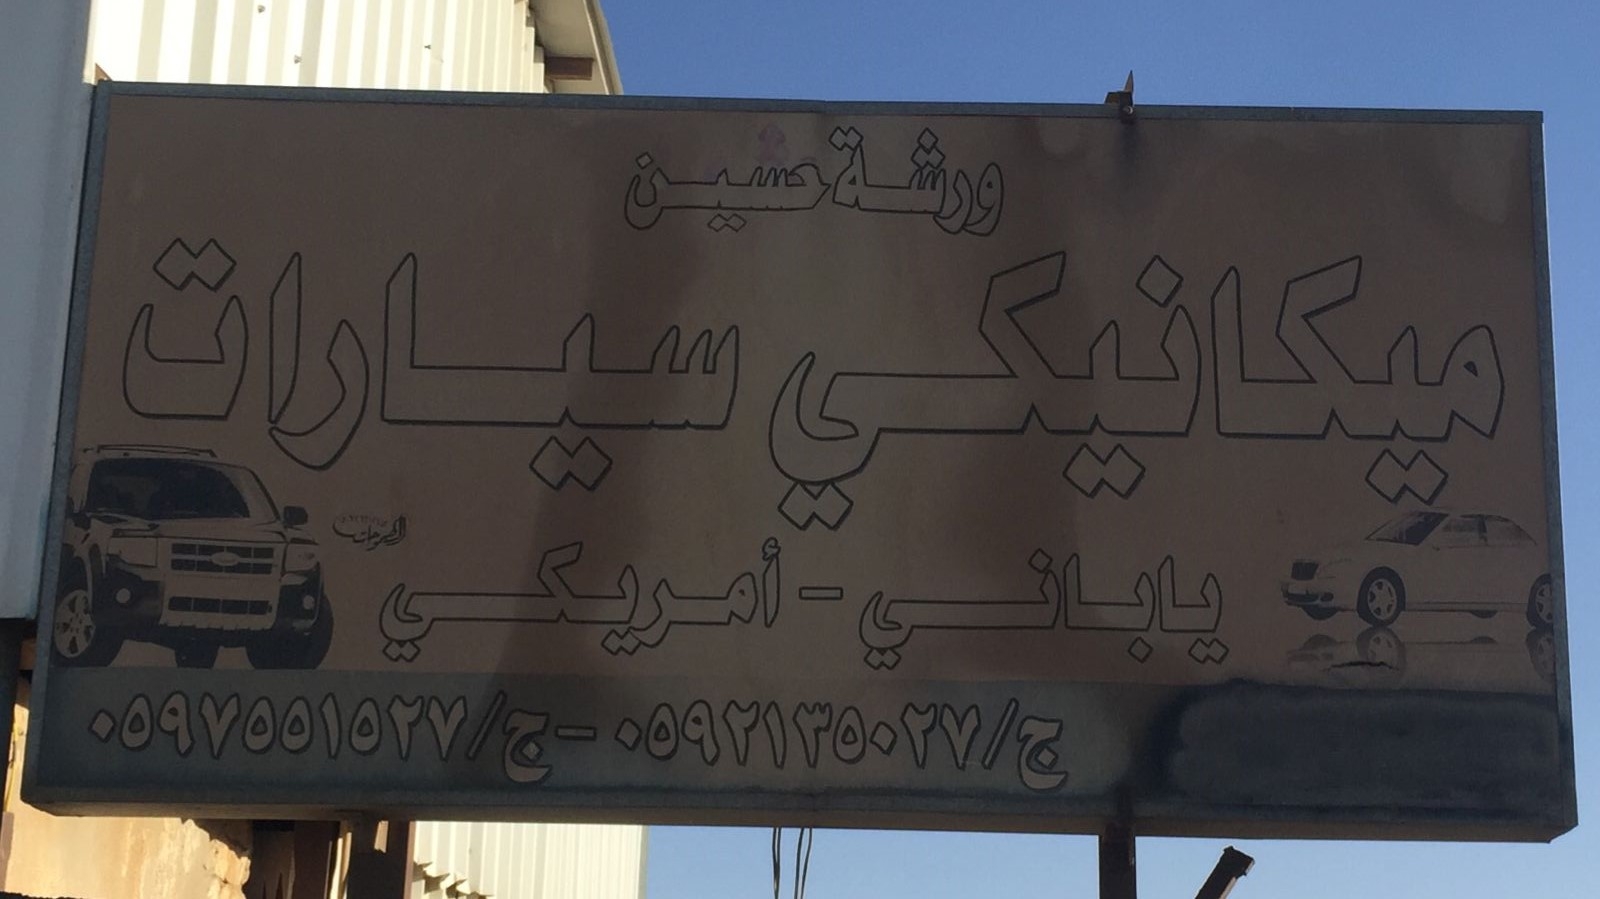 ورشة حسين
ميكانيكي سيارات
ياباني - أمريكي
ج/٠٥٩٢١٣٥٠٢٧ - ج/٠٥٩٧٥٥١٥٢٧